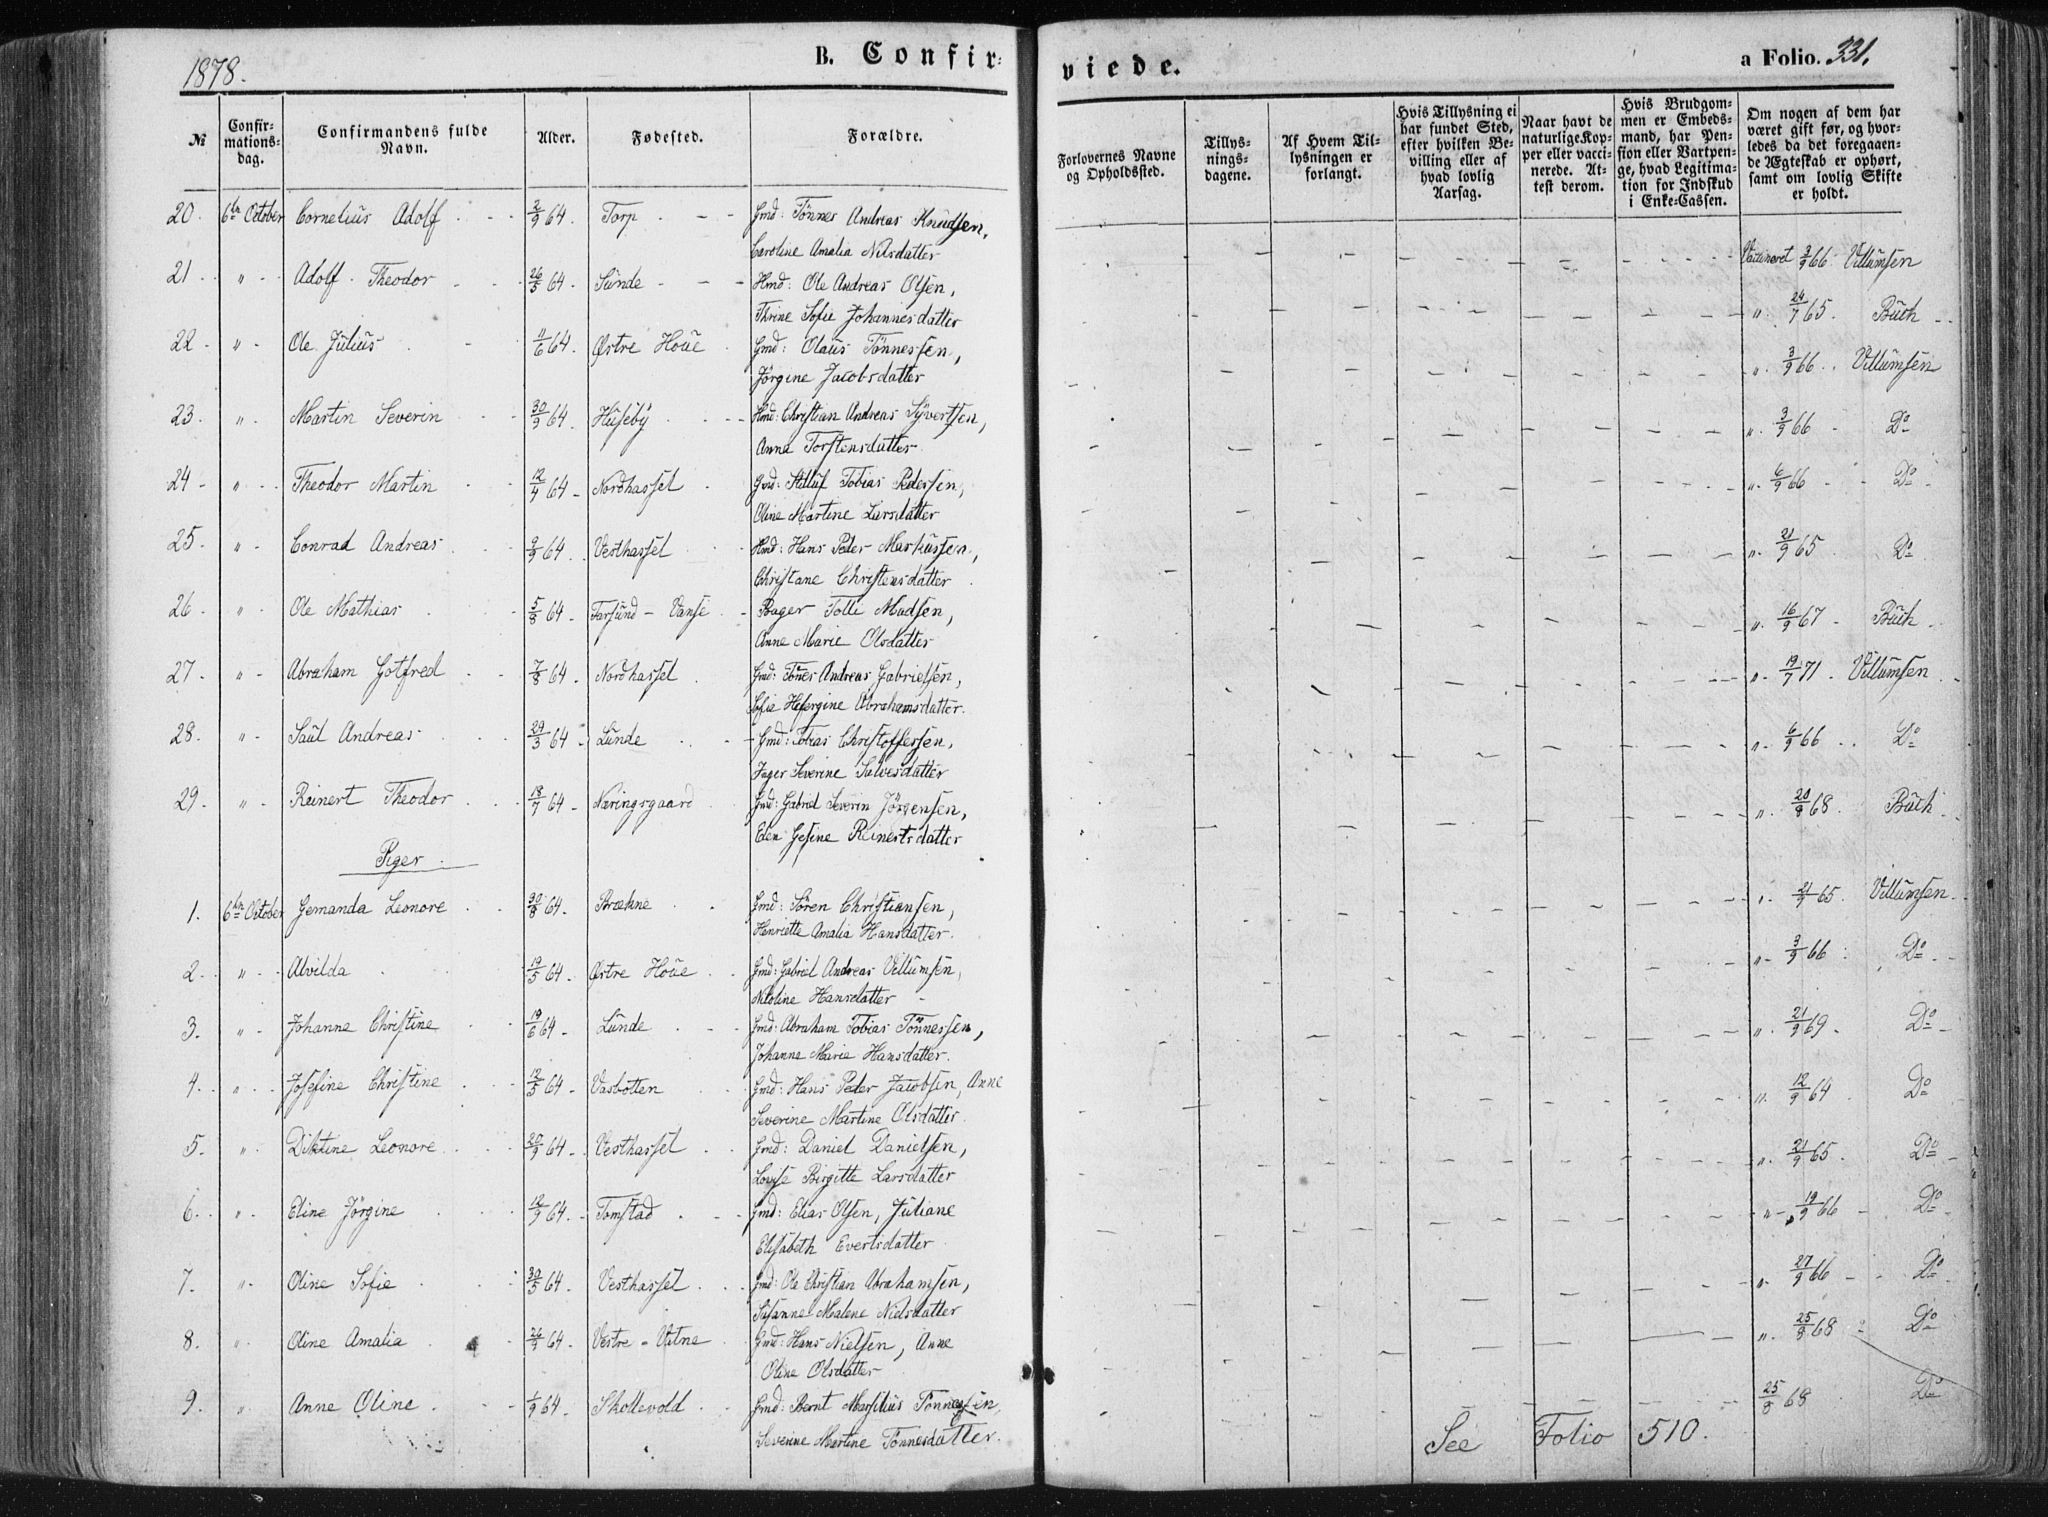 1878.
B. Confir-
№ Confir-mations-dag. Confirmandens fulde Navn. Alder. Fødested. Forældre.
20. 6te October Cornelius Adolf 2/9 64. Torp Gmd: Tönnes Andreas Knudsen,
Caroline Amalia Nilsdatter
21 " Adolf Theodor 26/5 64. Sunde Hmd: Ole Andreas Olsen,
Thrine Sofie Johannesdatter
22 " Ole Julius 11/6 64. Østre Houe Gmd: Olaus Tönnessen,
Jörgine Jacobsdatter
23. " Martin Severin 30/9 64. Huseby Hmd: Christian Andreas Syvertsen,
Anna Torstensdatter
24 " Theodor Martin 12/4 64 Nordhassel Gmd: Tobias Pedersen,
Oline Martine Larsdatter
25. " Conrad Andreas 9/9 64. Vesthassel Hmd: Hans Peder
Christiane Christensdatter
26. " Ole Mathias 5/8 64 Farsund - Vanse Bager Tolli Madsen,
Anne Marie Olsdatter
27. " Abraham Gotfred 7/8 64 Nordhassel Gmd: Tönes Andreas Gabrielsen,
Sofie Abrahamsdatter.
28. " Saul Andreas 29/3 64 Lunde Gmd: Tobias Christoffersen,
Inger Severine Salvesdatter
29. " Reinert Theodor 18/7 64 Næringsgaard Gmd: Gabriel Severin Jörgensen,
Elen Gesine Reinertsdatter
Piger
1. 6te October Gemanda Leonore 30/8 64. Bræhne Gmd: Sören Christiansen,
Henriette Amalia Hansdatter.
2. " Alvilda 19/5 64. Østre Houe Gmd: Gabriel Andreas Villumsen,
Nicoline Hansdatter
3. " Johanne Christine 19/6 64 Lunde Gmd: Abraham Tobias Tönnessen,
Johanne Marie Hansdatter.
4. " Josefine Christine 12/5 64 Vasbotten Gmd: Hans Peder Jacobsen, Anne
Severine Martine Olsdatter.
5. " Leonore 20/9 64. Vesthassel Gmd: Daniel Danielsen,
Lovise Birgitte Larsdatter
6. " Eline Jörgine 12/9 64. Tomstad Gmd: Elias Olsen, Juliane
Elisabeth Evertsdatter
7. " Oline Sofie 30/5 64. Vesthassel Gmd: Ole Christian Abrahamsen,
Susanne Malene Nielsdatter
8. " Oline Amalia 26/9 64 Vestre - Vatne Gmd: Hans Nielsen, Anne
Oline Olsdatter
9. " Anne Oline 1/9 64. Skollevold Gmd: Bernt Marselius Tönnessen,
Severine Martine Tönnesdatter.
viede.
a Folio. 331.
Forlovernes Navne og Opholdssted.
Tillys-nings-dagene.
Af Hvem Til-lysningen er forlangt.
Hvis Tillysning ei har fundet Sted, efter hvilken Be-villing eller af hvad lovlig Aarsag.
Naar havt de naturlige Kop-per eller vacci-nerede. At-test derom.
Hvis Brudgom-men er Embeds-mand, har Pen-sion eller Vartpen-ge, hvad Legitima-tion for Indskud i Enke-Cassen.
Om nogen af dem har været gift før, og hvor-ledes da det foregaaen-de Ægteskab er ophørt, samt om lovlig Skifte er holdt.
Vaccineret 3/9 66. Villumsen
" 24/7 65. Buch
" 3/9 66 Villumsen
" 3/9 66 Do
" 6/9 66 Do
" 21/9 65 Do
" 16/9 67 Buch
" 19/7 71. Villumsen
" 6/9 66 Do
" 20/8 68 Buch
" 21/9 65 Villumsen
" 3/9 66 Do
" 21/9 69 Do
" 12/9 64 Do
" 21/9 65. Do
" 19/9 66 Do
" 27/9 66 Do
" 25/8 68 Do
25/8 68 Do
See Folio 510.